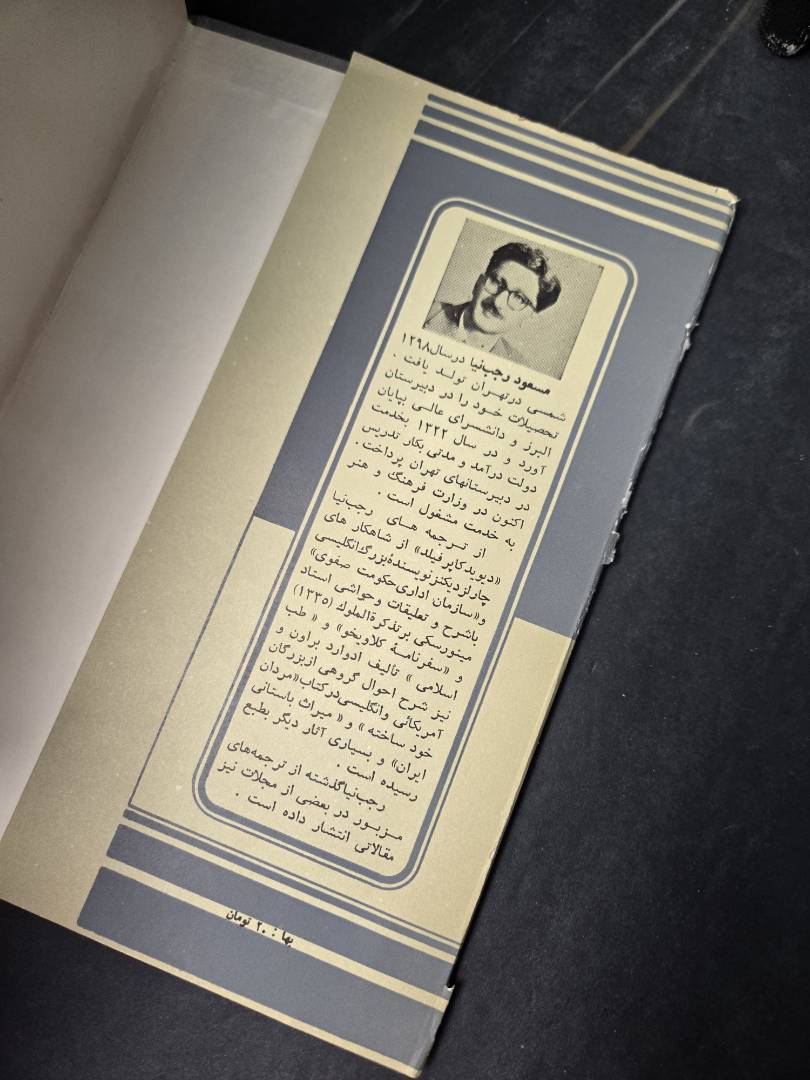 مسعود رجب‌نیا درسال۱۲۹۸
شمسی درتهران تولد یافت .
تحصیلات خود را در دبیرستان
البرز و دانشسرای عالی بپایان
آورد و در سال ۱۳۲۲ بخدمت
دولت درآمد و مدتی بکار تدریس
در دبیرستانهای تهران پرداخت .
اکنون در وزارت فرهنگ و هنر
به خدمت مشغول است .
از ترجمه های رجب‌نیا
«دیوید کاپرفیلد» از شاهکار های
چارلزدیکنز نویسندهٔ بزرگ انگلیسی
و«سازمان اداری حکومت صفوی»
باشرح و تعلیقات و حواشی استاد
مینورسکی بر تذکرةالملوك (۱۳۳۵)
و «سفرنامهٔ کلاویخو» و « طب
اسلامی » تألیف ادوارد براون و
نیز شرح احوال گروهی از بزرگان
آمریکائی وانگلیسی درکتاب«مردان
خود ساخته » و « میراث باستانی
ایران» و بسیاری آثار دیگر بطبع
رسیده است .
رجب‌نیا گذشته از ترجمه‌های
مزبور در بعضی از مجلات نیز
مقالاتی انتشار داده است .
بها : ۲۰ تومان